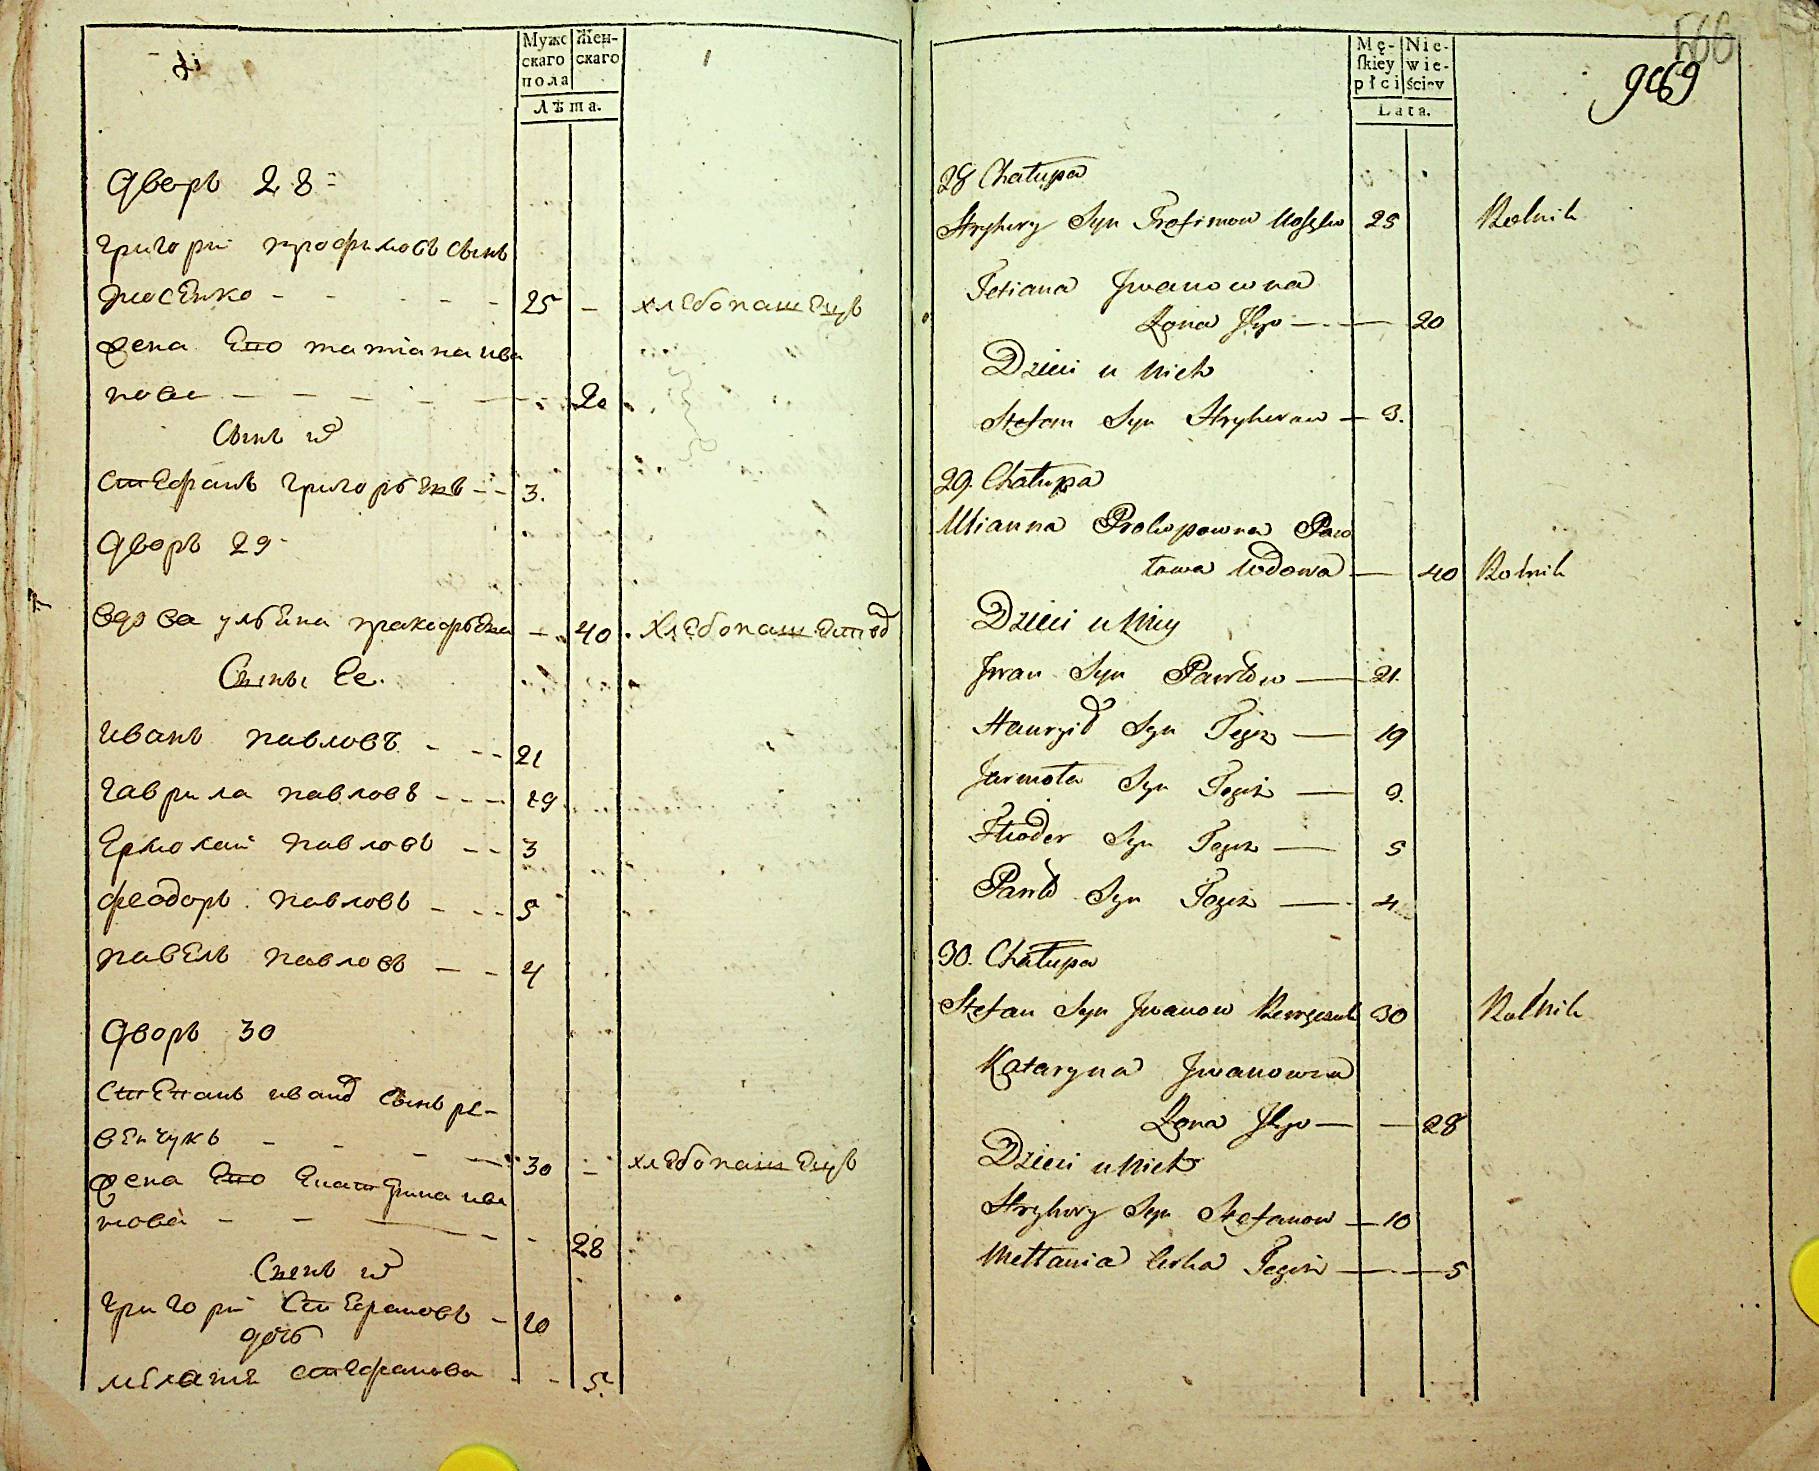 Мужс
скаго
пола
Жен-
скаго
Лѣта.
дворъ 28
григори трофимовъ сынъ
мосенко - - - - - 25 - хлебопашецъ
жена его татиана ива
нова - - - - - - 20
Сынъ их
стефанъ григорьевъ - - 3.
дворъ 29
вдова ульяна - 40 хлебопашет
Сыны Ее.
иванъ павловъ - - - 21
гаврила павловъ - - - 19
Ермолаи павловъ - - 3
феодоръ павловъ - - - 5
павелъ павловъ - - - 4
дворъ 30
степанъ иван сынъ ре-
венчукъ - - - - 30 - хлебопашецъ
жена его екатерина ива
нова - - - - - 28
Сынъ их
григори стефановъ - 10
дочь
стефанова - - 5.
566
969
Mę-
skiey
płci
Nie-
wie-
ściey
Lata.
28 Chałupa
Hryhory Syn Trofimow 25 Rolnik
Tetiana Jwanowna
Żona Jego — — 20
Dzieci u Nich
Stefan Syn Hryhorow — 3.
29. Chałupa
Ulianna Prokopowna Paw
łowa Wdowa — 40 Rolnik
Dzieci u Niey
Jwan Syn Pawłow — 21.
Hawryło Syn Tegoż — 19
Jarmoła Syn Tegoż — 9.
Fthodor Syn Tegoż — 5
Pawło Syn Tegoż — 4
30. Chałupa
Stefan Syn Jwanow 30 Rolnik
Kataryna Jwanowna
Żona Jego — — 28
Dzieci u Nich
Hryhory Syn Stefanow — 10
Mełania Corka Tegoż — — 5